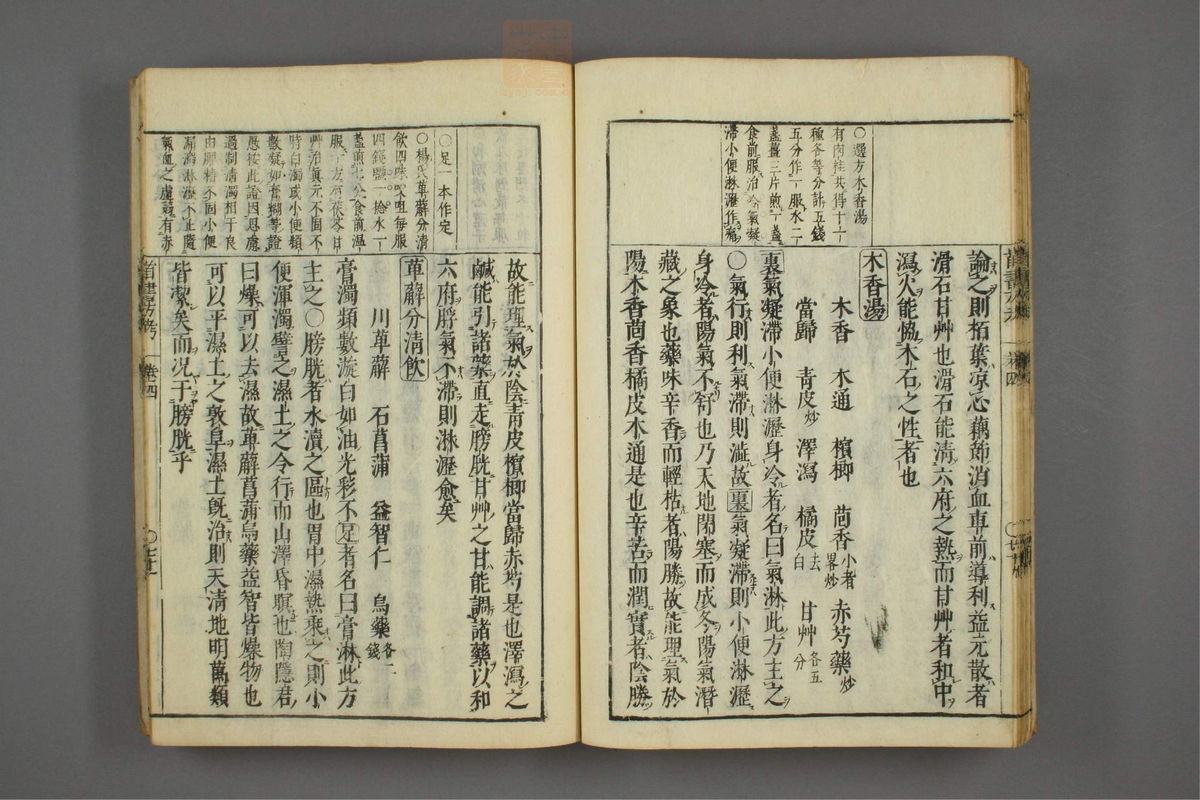 論之則栢葉凉心藕節消血車前導利益元散者
滑石甘艸也滑石能清六府之熱而甘艸者和中
瀉火能恊木石之性者也
木香湯
木香 木通 檳榔 茴香小者畧炒 赤芍藥炒
當歸 青皮炒 澤瀉 橘皮去白 甘艸各五分
裏氣凝滯小便淋瀝身冷者名曰氣淋此方主之
〇氣行則利氣滯則澁故裏氣凝滯則小便淋瀝
身冷者陽氣不舒也乃天地閉塞而成冬陽氣潛
藏之象也藥味辛香而輕枯者陽勝故能理氣於
陽木香茴香橘皮木通是也辛苦而潤實者陰勝
〇選方木香湯
有肉桂共得十一
種各等分計五錢
五分作一服水二
盞薑三片煎一盞
食前服治冷氣凝
滯小便淋澁作痛
首書方考 卷四
故能理氣於陰青皮檳榔當歸赤芍是也澤瀉之
鹹能引諸藥直走膀胱甘艸之甘能調諸藥以和
六府脬氣不滯則淋瀝愈矣
萆薢分清飲
川萆薢 石菖蒲 益智仁 烏藥各一錢
膏濁頻數漩白如油光彩不足者名曰膏淋此方
主之〇膀胱者水瀆之區也胃中濕熱乘之則小
便渾濁譬之濕土之令行而山澤昏暝也陶隱君
曰燥可以去濕故萆薢菖蒲烏藥益智皆燥物也
可以平濕土之敦阜濕土旣治則天清地明萬類
皆潔矣而况于膀胱乎
〇足一本作定
〇楊氏萆薢分清
飲四味㕮咀每服
四錢鹽一捻水一
盞煎七分食前温
服一方有茯苓甘
艸治眞元不固不
時白濁或小便頻
數凝如膏糊等證
愚按此證因思慮
過制清濁相干良
由脬精不固小便
漏濁淋瀝不止隨
氣血之虛實有赤
首書方考 卷四